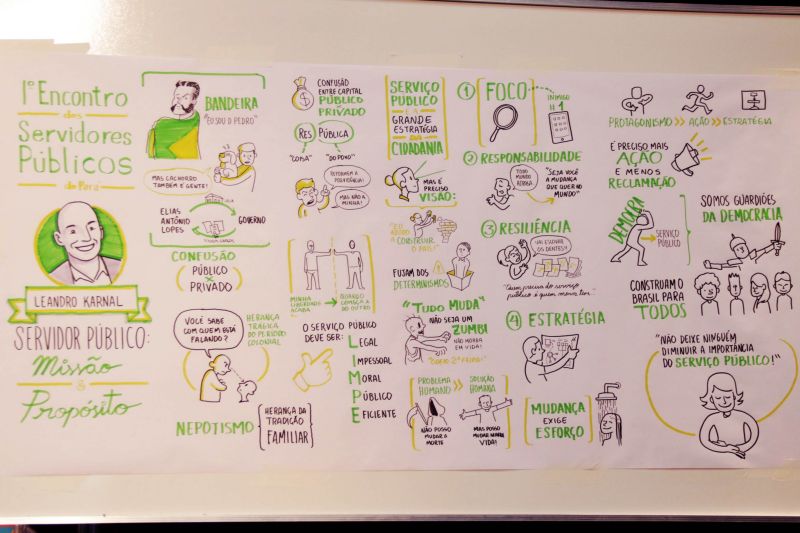 1º Encontro
dos
Servidores
Públicos
do Pará
LEANDRO KARNAL
SERVIDOR PÚBLICO:
Missão
&
Propósito
BANDEIRA
"EU SOU O PEDRO"
MAS CACHORRO
TAMBÉM É GENTE!
ELIAS
ANTÔNIO
LOPES
GOVERNO
CONFUSÃO
PÚBLICO
PRIVADO
VOCÊ SABE
COM QUEM ESTÁ
FALANDO?
HERANÇA
TRÁGICA
DO PERÍODO
COLONIAL
NEPOTISMO
HERANÇA DA
TRADIÇÃO
FAMILIAR
$
CONFUSÃO
ENTRE CAPITAL
PÚBLICO
PRIVADO
RES PÚBLICA
"COISA" "DO POVO"
REFORMEM A
PREVIDÊNCIA!
MAS NÃO A
MINHA!
MINHA
LIBERDADE
ACABA
QUANDO
COMEÇA A
DO OUTRO
O SERVIÇO PÚBLICO
DEVE SER:
LEGAL
IMPESSOAL
MORAL
PÚBLICO
EFICIENTE
SERVIÇO
PÚBLICO
É A
GRANDE
ESTRATÉGIA
CIDADANIA
MAS É
PRECISO
VISÃO:
"EU
AJUDO A
CONSTRUIR
O PAÍS!"
FUJAM DOS
DETERMINISMOS
"TUDO MUDA"
NÃO SEJA UM
ZUMBI
NÃO MORRA
EM VIDA!
"ODEIO 2ª FEIRA!"
PROBLEMA
HUMANO
>>
SOLUÇÃO
HUMANA
NÃO POSSO
MUDAR A
MORTE
MAS POSSO
MUDAR MINHA
VIDA!
1 FOCO
INIMIGO
#1
2 RESPONSABILIDADE
TODO
MUNDO
ATRASA
"SEJA VOCÊ
A MUDANÇA
QUE QUER NO
MUNDO"
3 RESILIÊNCIA
VAI ESCOVAR
OS DENTES!
"Quem precisa do serviço
público é quem menos tem."
4 ESTRATÉGIA
MUDANÇA
EXIGE
ESFORÇO
PROTAGONISMO >> AÇÃO >> ESTRATÉGIA
É PRECISO MAIS
AÇÃO
E MENOS
RECLAMAÇÃO
SERVIÇO
PÚBLICO
SOMOS GUARDIÕES
DA DEMOCRACIA
CONSTRUAM O
BRASIL PARA
TODOS
"NÃO DEIXE NINGUÉM
DIMINUIR A IMPORTÂNCIA
DO SERVIÇO PÚBLICO!"